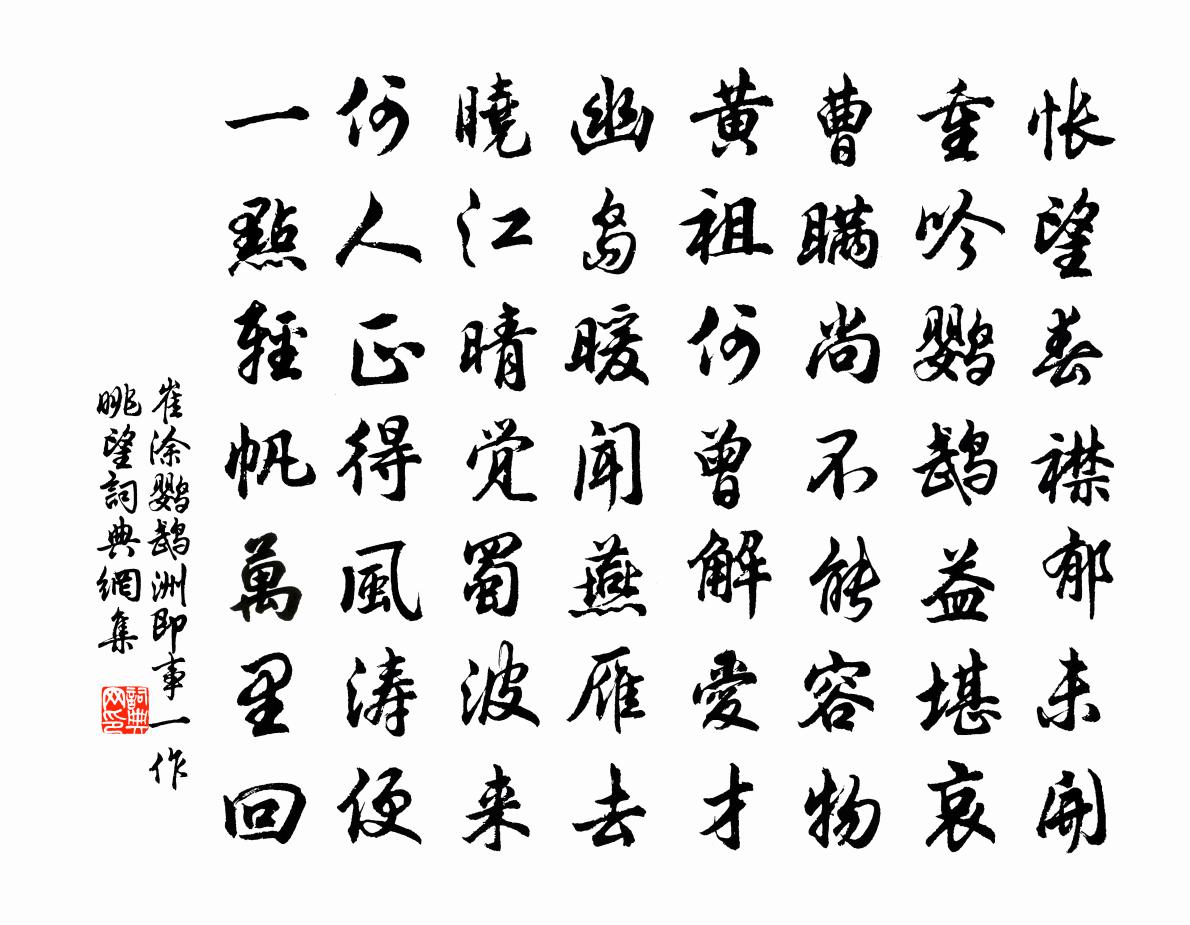 怅望春襟郁未開
重吟鹦鵡益堪哀
曹瞞尚不能容物
黄祖何曾解愛才
幽岛暖闻燕雁去
曉江晴觉蜀波来
何人正得風涛便
一點輕帆萬里回
崔涂鹦鵡洲即事一作
眺望詞典網集
詞典网印